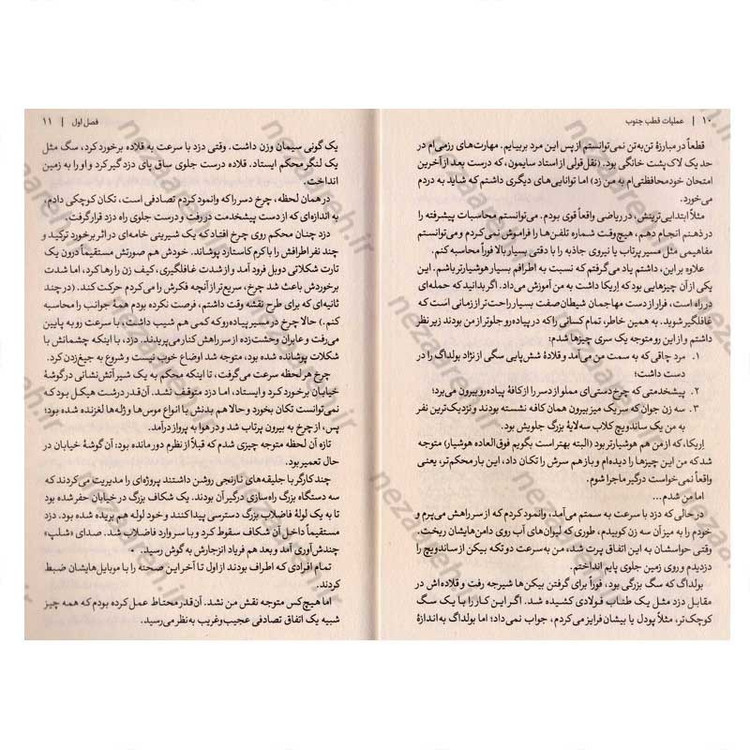 ۱۰ | عملیات قطب جنوب
قطعاً در مبارزهٔ تن‌به‌تن نمی‌توانستم از پس این مرد بربیایم. مهارت‌های رزمی‌ام در
حد یک لاک‌پشت خانگی بود. (نقل‌قولی از استاد سایمون، که درست بعد از آخرین
امتحان خودمحافظتی‌ام به من زد) اما توانایی‌های دیگری داشتم که شاید به دردم
می‌خورد.
مثلاً ابتدایی‌ترینش، در ریاضی واقعاً قوی بودم. می‌توانستم محاسبات پیشرفته را
در ذهنم انجام دهم، هیچ‌وقت شماره تلفن‌ها را فراموش نمی‌کردم و می‌توانستم
مفاهیمی مثل مسیر پرتاب یا نیروی جاذبه را با دقتی بسیار بالا فوراً محاسبه کنم.
علاوه بر این، داشتم یاد می‌گرفتم که نسبت به اطرافم بسیار هوشیارتر باشم.
یکی از آن چیزهایی که اریکا داشت به من آموزش می‌داد. اگر بدانید که حمله‌ای
در راه است، فرار از دست مهاجمان شیطان‌صفت بسیار راحت‌تر از زمانی است که
غافلگیر شوید. به همین خاطر، تمام کسانی را که در پیاده‌رو جلوتر از من بودند زیر نظر
داشتم و از این رو متوجه یک سری چیزها شدم:
۱. مرد چاقی که به سمت من می‌آمد و قلادهٔ شش‌پایی سگی از نژاد بولداگ را در
دست داشت؛
۲. پیشخدمتی که چرخ‌دستی‌ای مملو از دسر را از کافه پیاده‌رو بیرون می‌برد؛
۳. سه زن جوان که سر یک میز بیرون همان کافه نشسته بودند و نزدیک‌ترین نفر
به من یک ساندویچ کلاب سه‌لایهٔ بزرگ جلویش بود.
اریکا، که از من هم هوشیارتر بود (البته بهتر است بگویم فوق‌العاده هوشیار) متوجه
شد که من این چیزها را دیده‌ام و باز هم سرش را تکان داد، این بار محکم‌تر، یعنی
واقعاً نمی‌خواست درگیر ماجرا شوم.
اما من شدم...
در حالی که دزد با سرعت به سمتم می‌آمد، وانمود کردم که از سر راهش می‌پرم و
خودم را به میز آن سه زن کوبیدم، طوری که لیوان‌های آب روی دامن‌هایشان ریخت.
وقتی حواسشان به این اتفاق پرت شد، من به‌سرعت دو تکه بیکن از ساندویچ را
دزدیدم و روی زمین جلوی پایم انداختم.
بولداگ که سگ بزرگی بود، فوراً برای گرفتن بیکن‌ها شیرجه رفت و قلاده‌اش در
مقابل دزد مثل یک طناب فولادی کشیده شد. اگر این کار را با یک سگ
کوچک‌تر، مثلاً پودل یا بیشان فرایز می‌کردم، جواب نمی‌داد؛ اما بولداگ به اندازهٔ
فصل اول | ۱۱
یک گونی سیمان وزن داشت. وقتی دزد با سرعت به قلاده برخورد کرد، سگ مثل
یک لنگر محکم ایستاد. قلاده درست جلوی ساق پای دزد گیر کرد و او را به زمین
انداخت.
در همان لحظه، چرخ دسر را که وانمود کردم تصادفی است، تکان کوچکی دادم،
به اندازه‌ای که از دست پیشخدمت در رفت و درست جلوی راه دزد قرار گرفت.
دزد چنان محکم روی چرخ افتاد که یک شیرینی خامه‌ای در اثر برخورد ترکید و
چند نفر اطرافش را با کرم کاستارد پوشاند. خودش هم صورتش مستقیماً درون یک
تارت شکلاتی دوبل فرود آمد و از شدت غافلگیری، کیف زن را رها کرد، اما شدت
برخوردش باعث شد چرخ، سریع‌تر از آنچه فکرش را می‌کردم حرکت کند. (در چند
ثانیه‌ای که برای طرح نقشه وقت داشتم، فرصت نکرده بودم همهٔ جوانب را محاسبه
کنم.) حالا چرخ در مسیر پیاده‌رو که کمی هم شیب داشت، با سرعت رو به پایین
می‌رفت و عابران وحشت‌زده از سر راهش کنار می‌پریدند. دزد، با اینکه چشمانش با
شکلات پوشانده شده بود، متوجه شد اوضاع خوب نیست و شروع به جیغ‌زدن کرد.
چرخ هر لحظه سرعت می‌گرفت، تا اینکه محکم به یک شیر آتش‌نشانی در گوشهٔ
خیابان برخورد کرد و ایستاد، اما دزد متوقف نشد. آن‌قدر درشت هیکل بود که
نمی‌توانست تکان بخورد و حالا هم بدنش با انواع موس‌ها و ژله‌ها لغزنده شده بود؛
پس، از چرخ به بیرون پرتاب شد و در هوا به پرواز درآمد.
تازه آن لحظه متوجه چیزی شدم که قبلاً از نظرم دور مانده بود: آن گوشهٔ خیابان در
حال تعمیر بود.
چند کارگر با جلیقه‌های نارنجی روشن داشتند پروژه‌ای را مدیریت می‌کردند که
سه دستگاه بزرگ راه‌سازی درگیر آن بودند. یک شکاف بزرگ در خیابان حفر شده بود
تا به یک لولهٔ فاضلاب بزرگ دسترسی پیدا کنند و خود لوله هم بریده شده بود. دزد
مستقیماً داخل آن شکاف سقوط کرد و با سر وارد فاضلاب شد. صدای «شلپ»
چندش‌آوری آمد و بعد هم فریاد انزجارش به گوش رسید.
تمام افرادی که اطراف بودند از اول تا آخر این صحنه را با موبایل‌هایشان ضبط
کردند.
اما هیچ‌کس متوجه نقش من نشد. آن‌قدر محتاط عمل کرده بودم که همه چیز
شبیه یک اتفاق تصادفی عجیب‌وغریب به نظر می‌رسید.
nezareh.ir